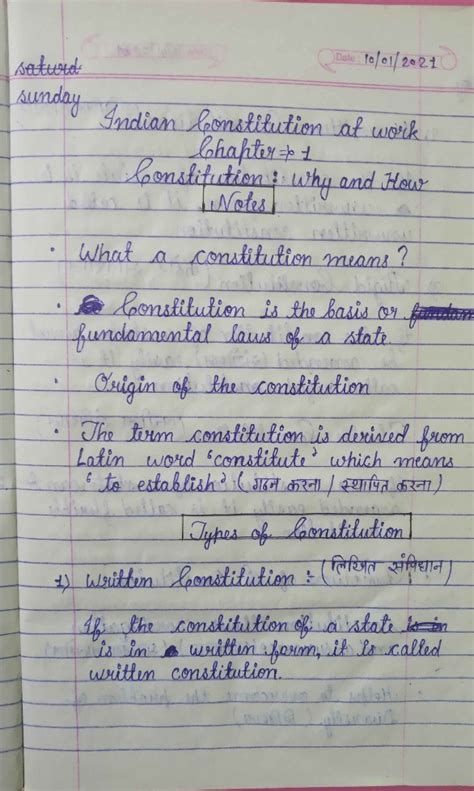 Date: 10/01/2021
saturd
sunday
Indian Constitution at work
Chapter ⇒ 1
Constitution : Why and How
Notes
• What a constitution means ?
• Constitution is the basis or
fundamental laws of a state.
• Origin of the constitution
• The term constitution is derived from
Latin word 'constitute' which means
' to establish' ( गठन करना / स्थापित करना )
Types of Constitution
1) Written Constitution :- ( लिखित संविधान )
If the constitution of a state is in
is in written form, it is called
written constitution.